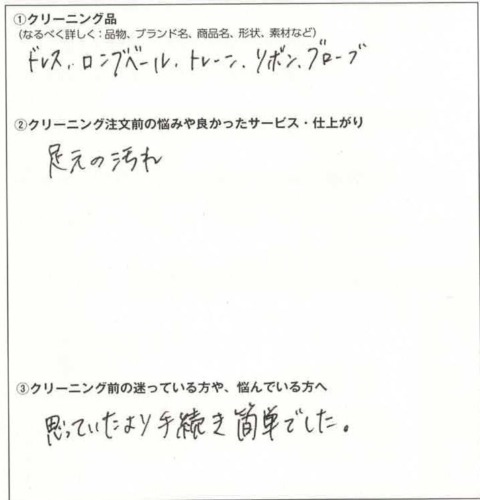 ①クリーニング品
(なるべく詳しく：品物、ブランド名、商品名、形状、素材など)
ドレス、ロングベール、トレーン、リボン、グローブ
②クリーニング注文前の悩みや良かったサービス・仕上がり
足元の汚れ
③クリーニング前の迷っている方や、悩んでいる方へ
思っていたより手続き簡単でした。